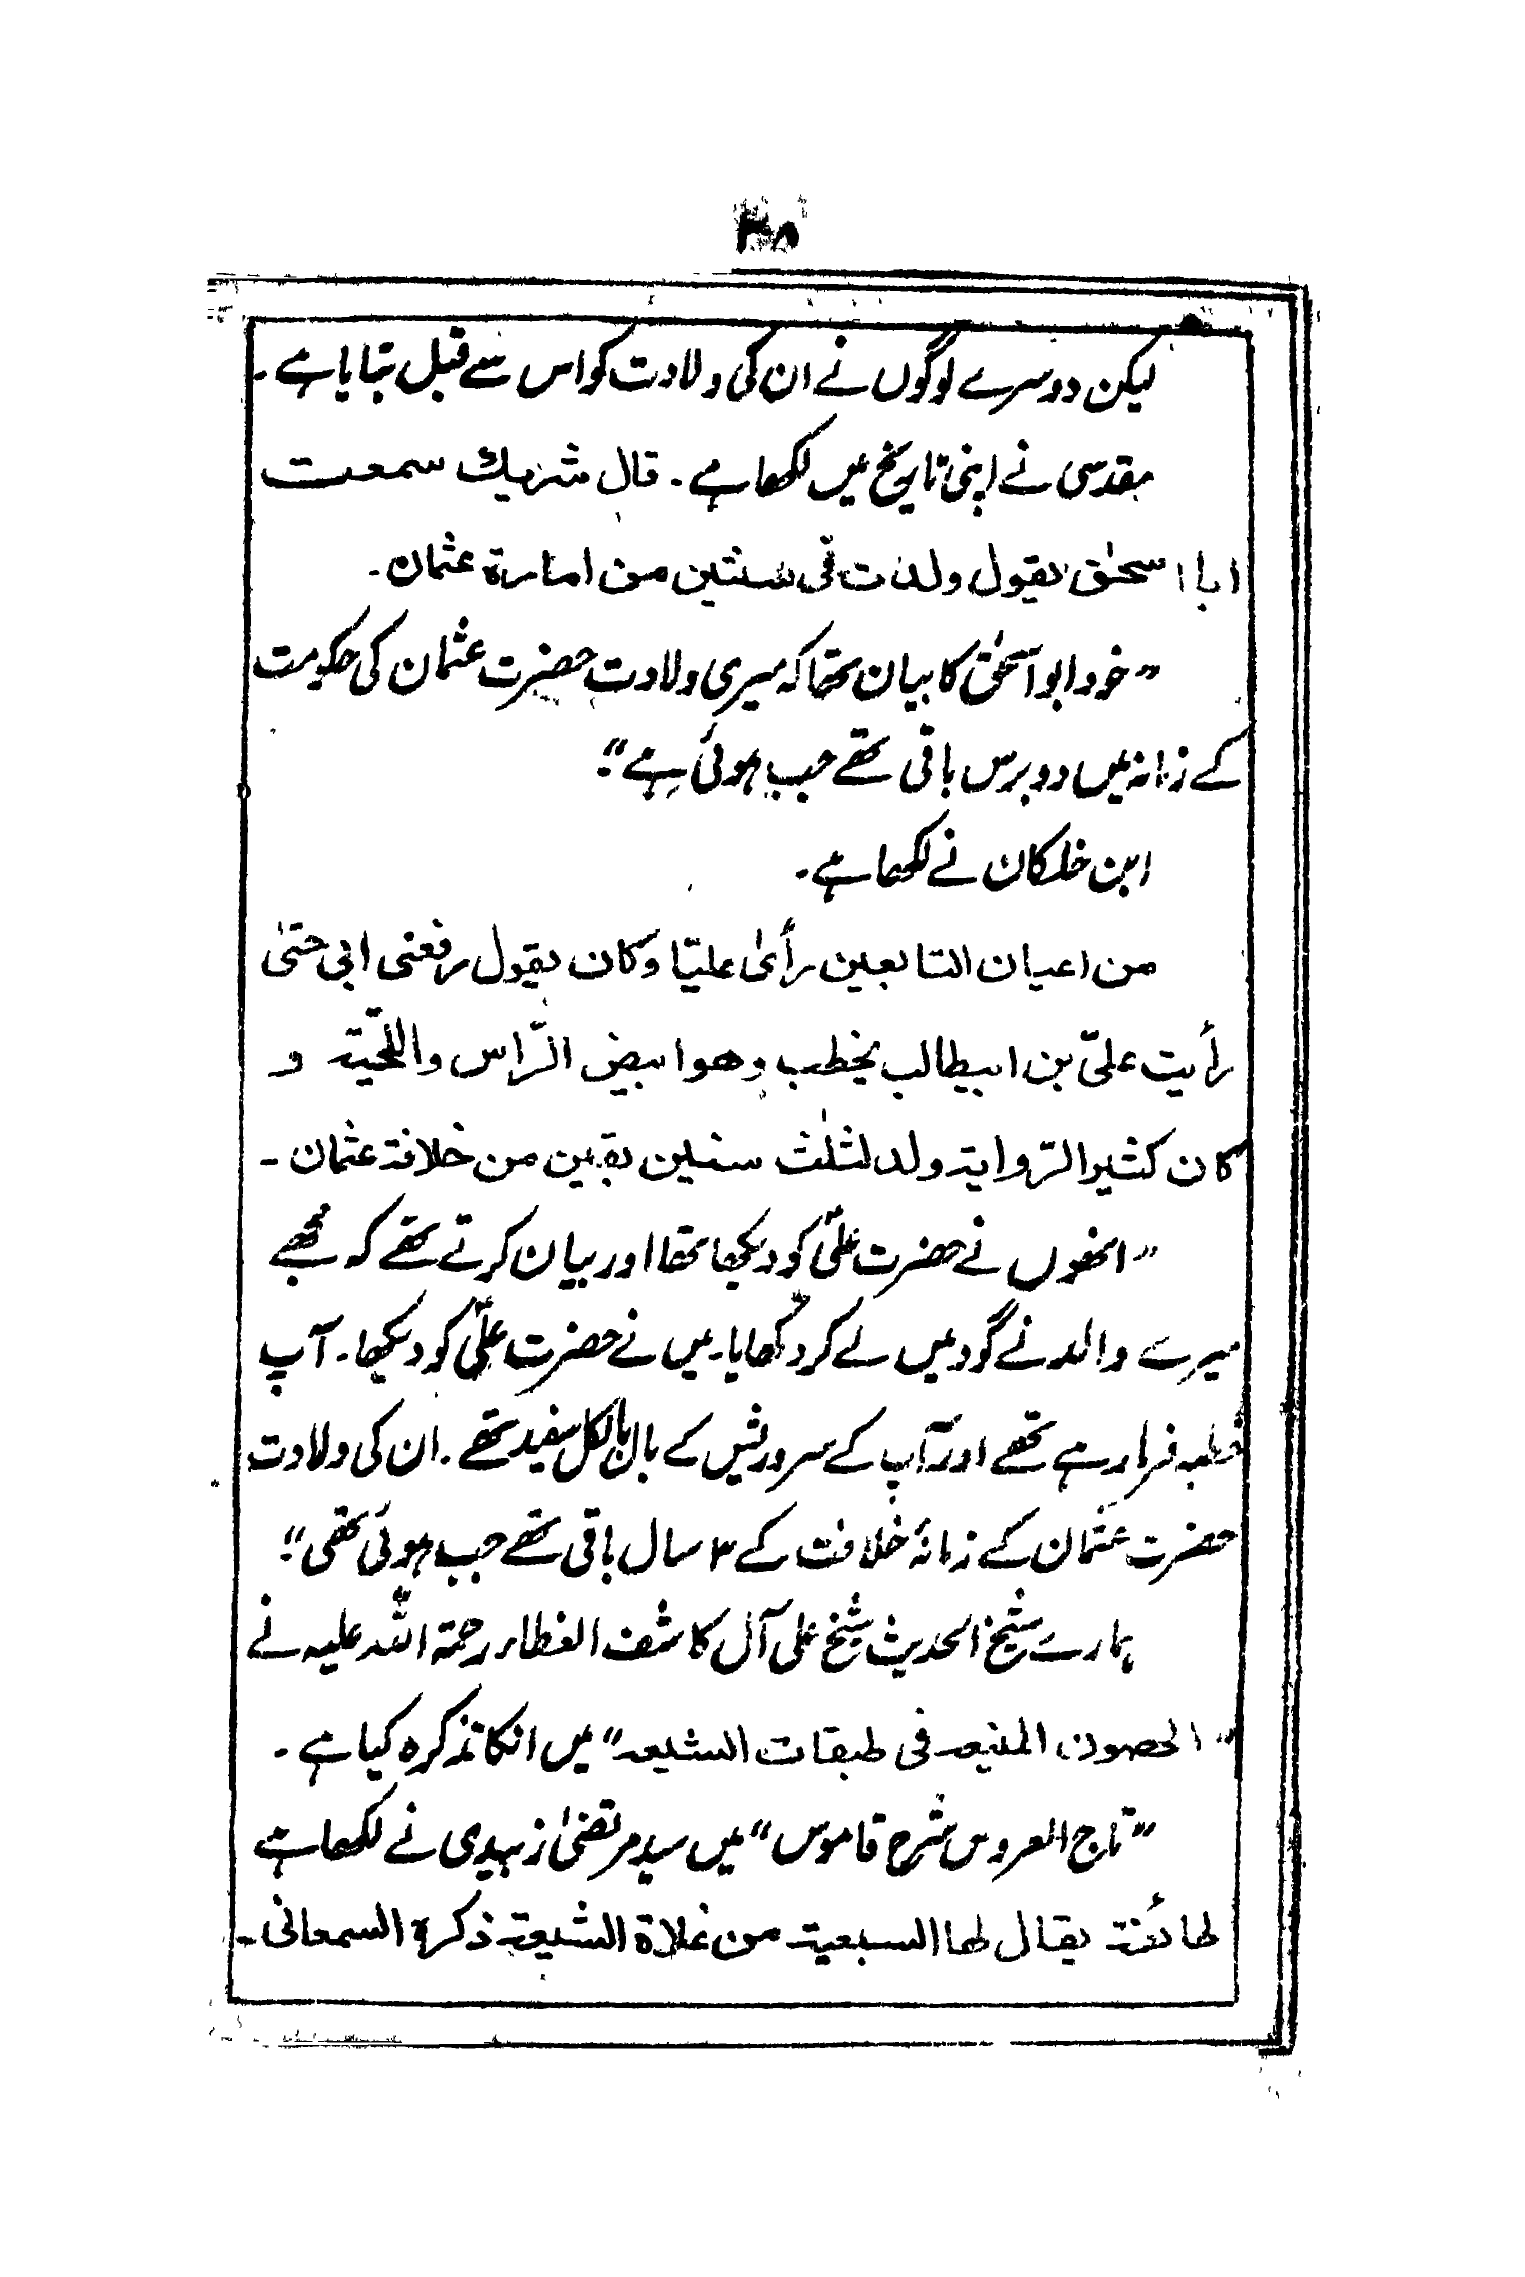 ۳۵
لیکن دوسرے لوگوں نے ان کی ولادت کو اس سے قبل بتایا ہے۔
مقدسی نے اپنی تاریخ میں لکھا ہے۔ قال شریك سمعت
ابا اسحٰق یقول ولدت فی سنتین من امارۃ عثمان۔
”خود ابو اسحٰق کا بیان تھا کہ میری ولادت حضرت عثمان کی حکومت
کے زمانہ میں دو برس باقی تھے جب ہوئی ہے“۔
ابن خلکان نے لکھا ہے۔
من اعیان التابعین رأیٰ علیّا وکان یقول رفعنی ابی حتیٰ
رأیت علیّ بن ابیطالب یخطب وھو ابیض الرّاس واللّحیۃ و
کان کثیر الرّوایۃ ولد لثلٰث سنین بقین من خلافۃ عثمان۔
”انھوں نے حضرت علیؑ کو دیکھا تھا اور بیان کرتے تھے کہ مجھے
میرے والد نے گود میں لے کر دکھایا۔ میں نے حضرت علیؑ کو دیکھا۔ آپ
خطبہ فرما رہے تھے اور آپ کے سر و ریش کے بال بالکل سفید تھے۔ ان کی ولادت
حضرت عثمان کے زمانۂ خلافت کے ۳ سال باقی تھے جب ہوئی تھی“۔
ہمارے شیخ الحدیث شیخ علی آل کاشف الغطاء رحمۃ اللہ علیہ نے
”الحصون المنیعہ فی طبقات الشیعہ“ میں انکا تذکرہ کیا ہے۔
”تاج العروس شرح قاموس“ میں سید مرتضیٰ زبیدی نے لکھا ہے
طائفۃ یقال لھا السبعیۃ من غلاۃ الشیعۃ ذکرہ السمعانی۔